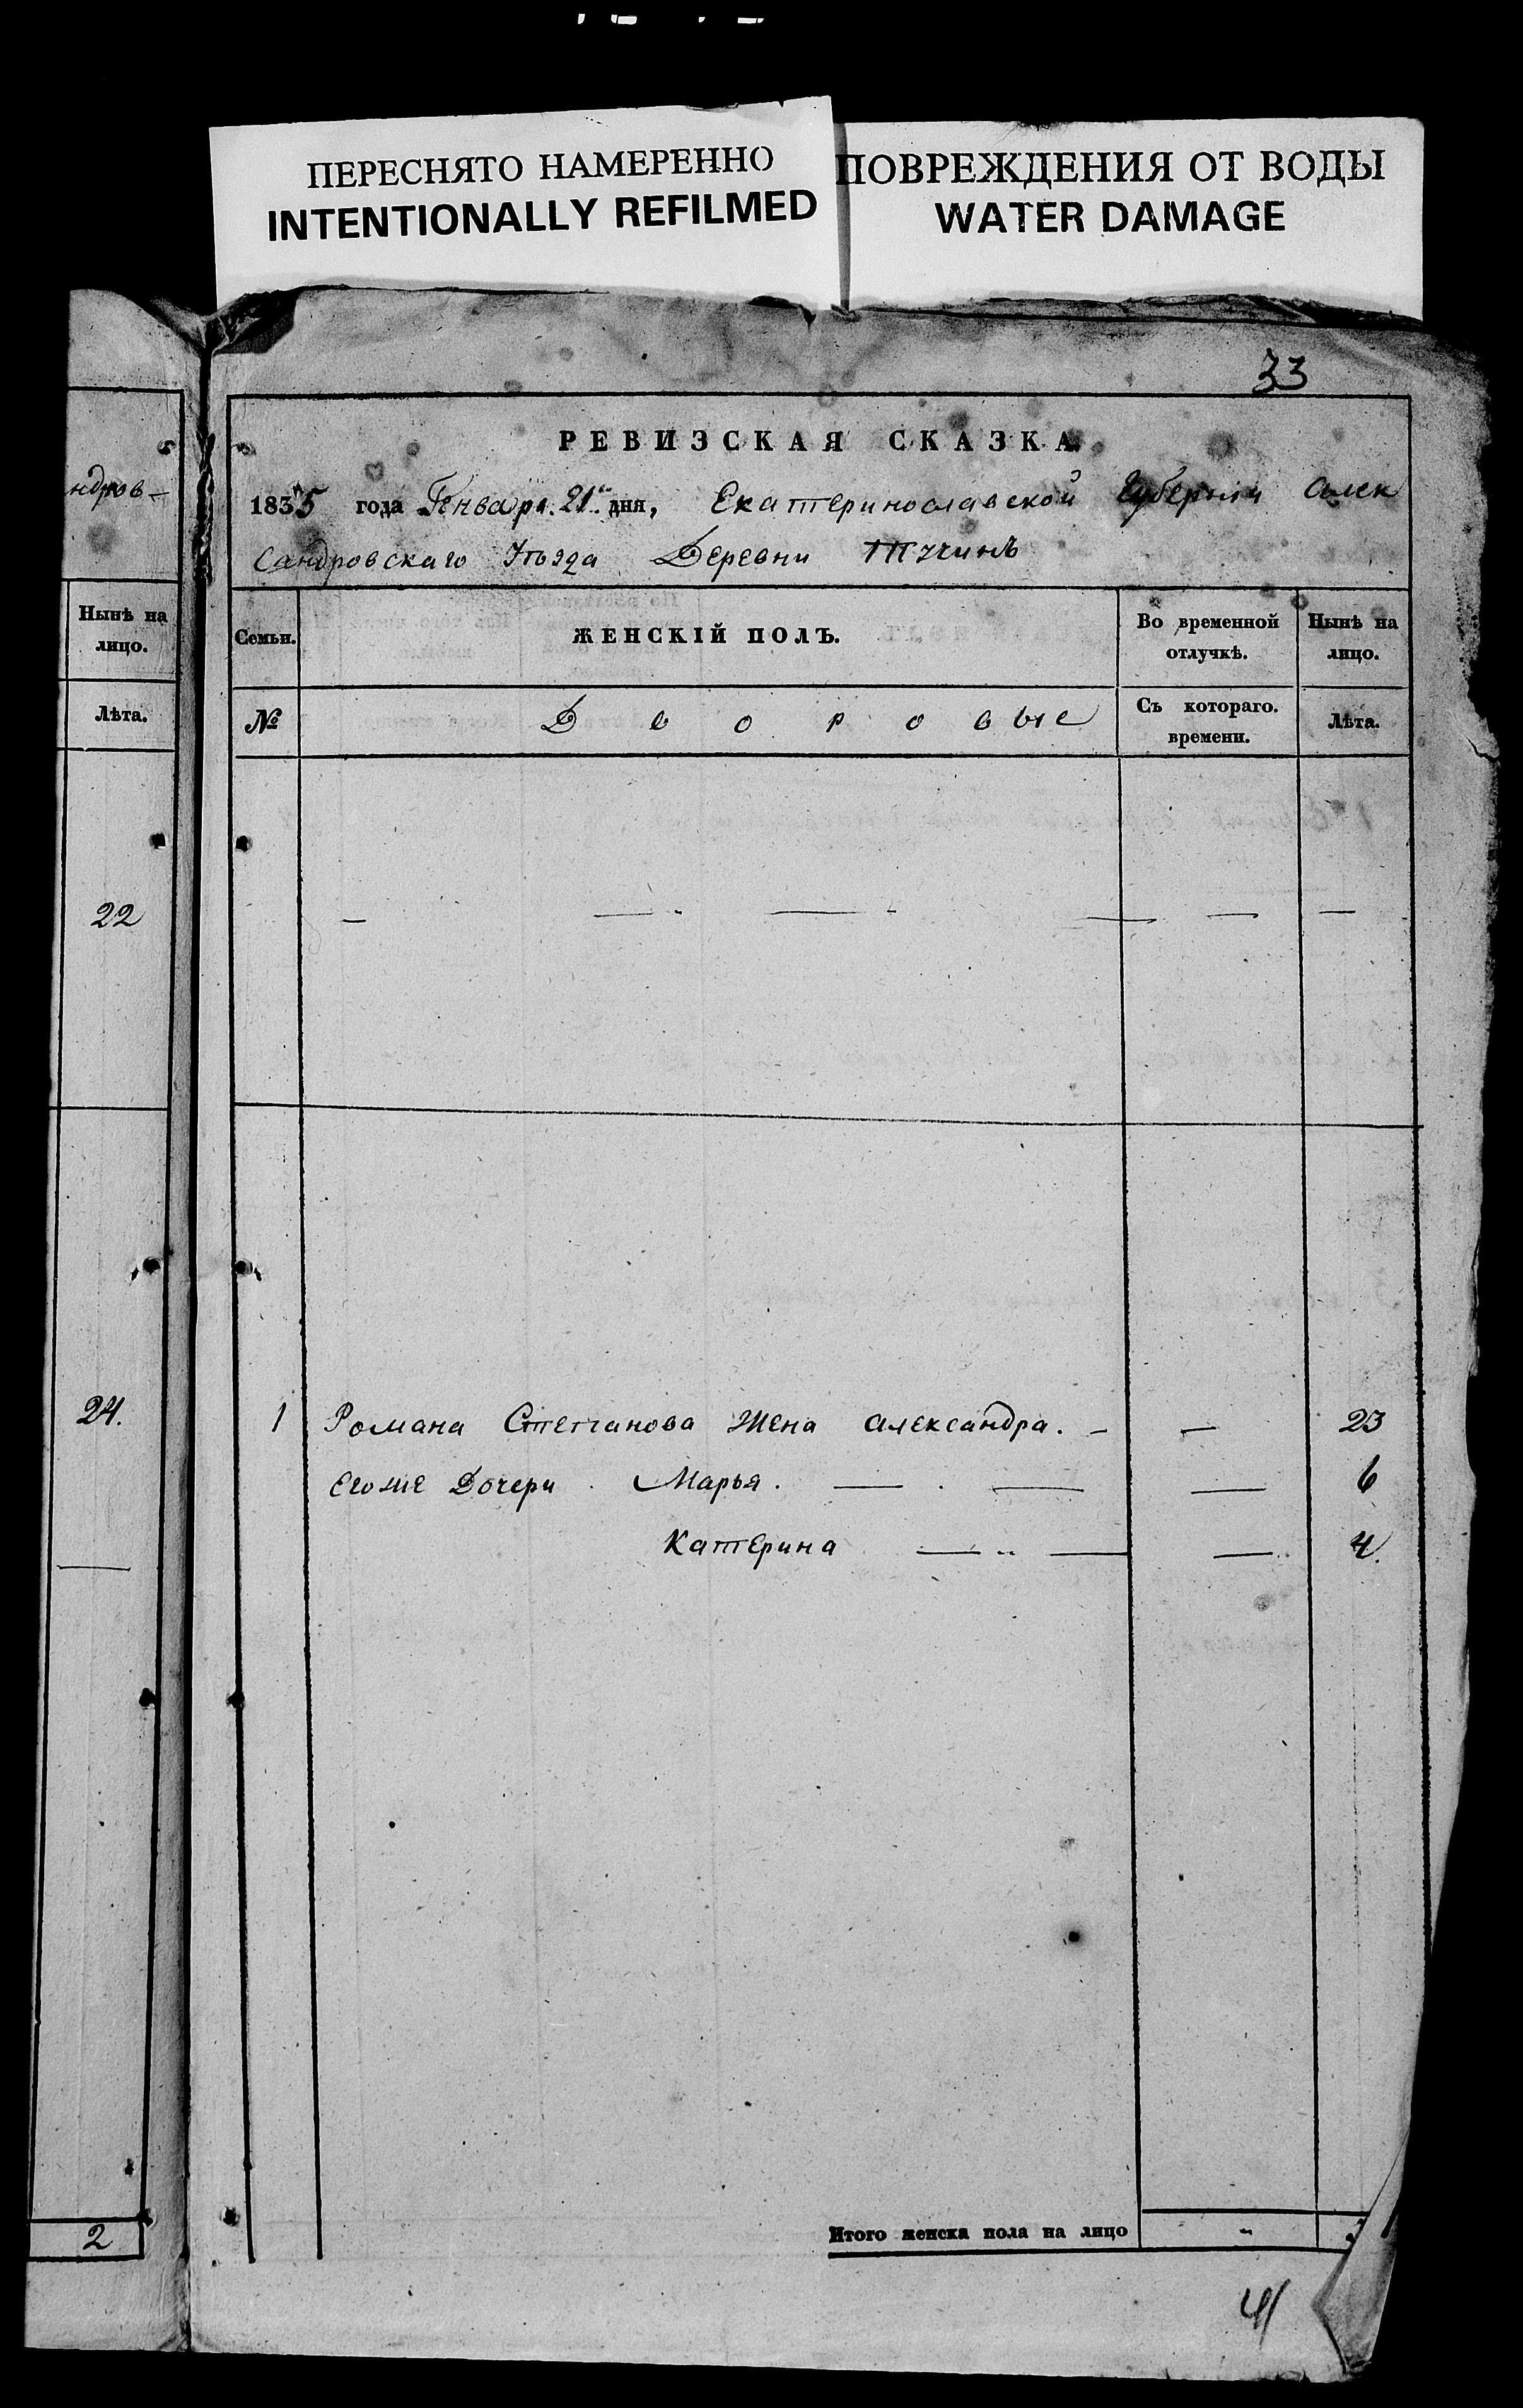 ПЕРЕСНЯТО НАМЕРЕННО
INTENTIONALLY REFILMED
ПОВРЕЖДЕНИЯ ОТ ВОДЫ
WATER DAMAGE
33
ндров-
Нынѣ на
лицо.
Лѣта.
22
24.
2
РЕВИЗСКАЯ СКАЗКА
1835 года Генваря 21 дня, Екатеринославской Губерніи Алек
сандровскаго Уѣзда Деревни
Семьи.
ЖЕНСКІЙ ПОЛЪ.
Во временной
отлучкѣ.
Нынѣ на
лицо.
№
Дворовые
Съ котораго.
времени.
Лѣта.
1 Романа Степанова Жена Александра. - — 23
Егоже Дочери Марья. — — — 6
Катерина — — — 4.
Итого женска пола на лицо